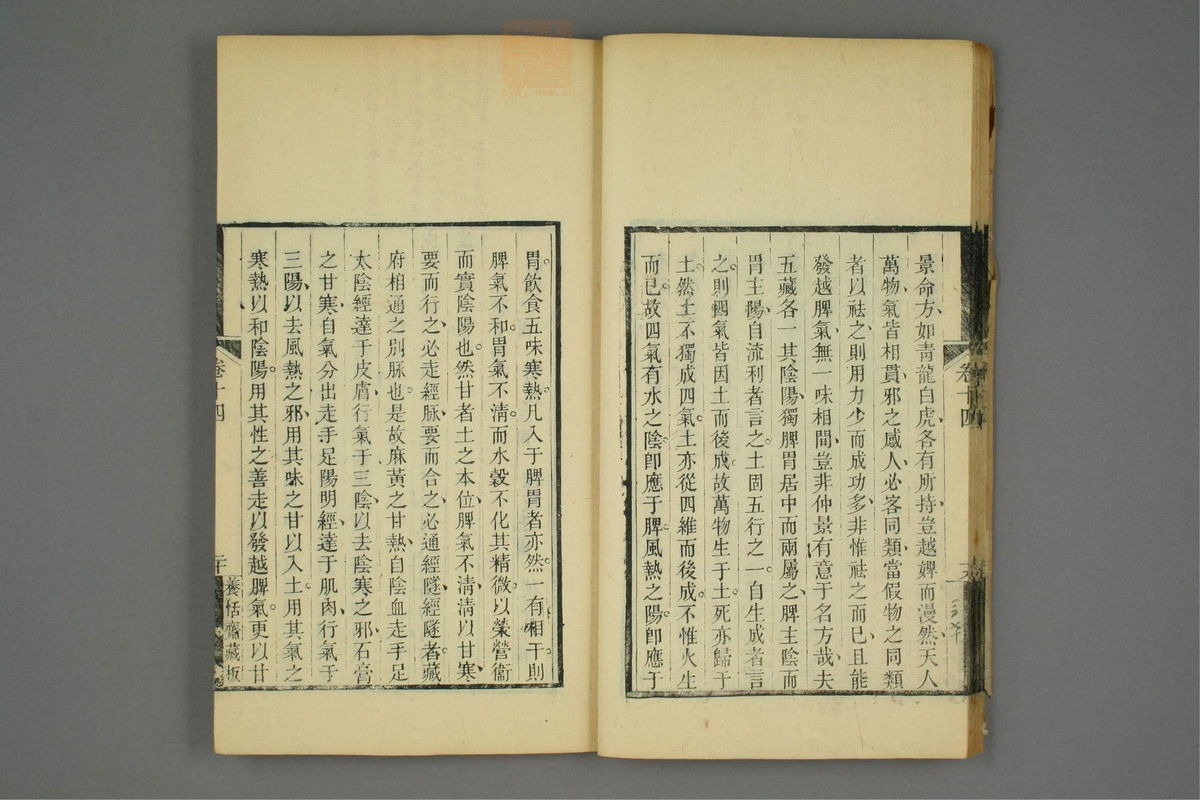 景命方如青龍白虎各有所持豈越婢而漫然天人
萬物氣皆相貫邪之感人必客同類當假物之同類
者以祛之則用力少而成功多非惟祛之而已且能
發越脾氣無一味相間豈非仲景有意于名方哉夫
五藏各一其陰陽獨脾胃居中而兩屬之脾主陰而
胃主陽自流利者言之土固五行之一自生成者言
之則四氣皆因土而後成故萬物生于土死亦歸于
土然土不獨成四氣土亦從四維而後成不惟火生
而已故四氣有水之陰卽應于脾風熱之陽卽應于
卷十四
胃飲食五味寒熱凡入于脾胃者亦然一有相干則
脾氣不和胃氣不淸而水穀不化其精微以榮營衞
而實陰陽也然甘者土之本位脾氣不淸淸以甘寒
要而行之必走經脉要而合之必通經隧經隧者藏
府相通之別脉也是故麻黃之甘熱自陰血走手足
太陰經達于皮膚行氣于三陰以去陰寒之邪石膏
之甘寒自氣分出走手足陽明經達于肌肉行氣于
三陽以去風熱之邪用其味之甘以入土用其氣之
寒熱以和陰陽用其性之善走以發越脾氣更以甘
卷十四
養恬齋藏板